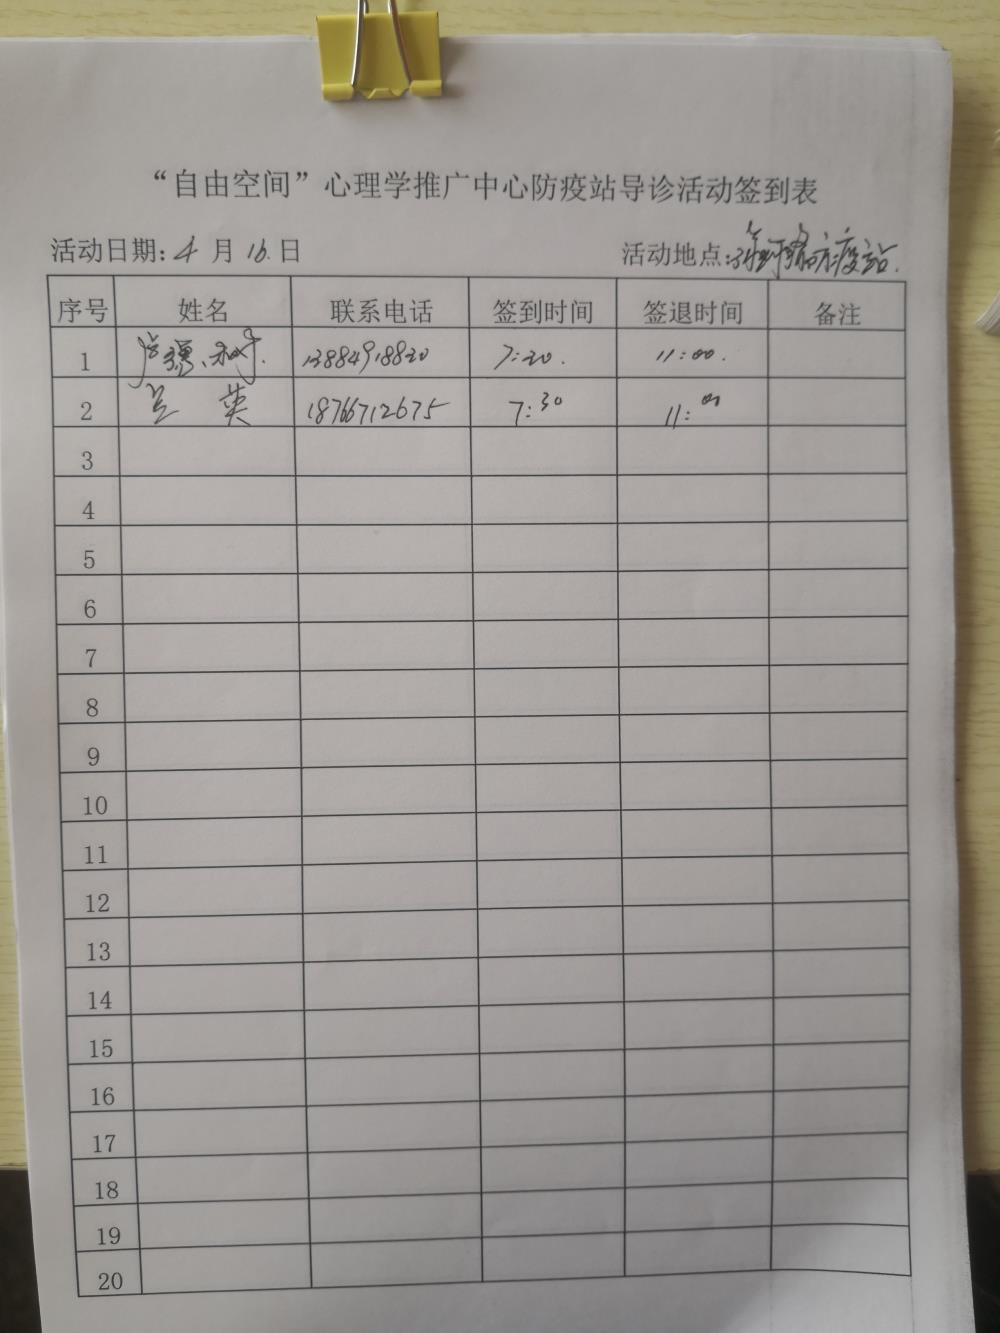 “自由空间”心理学推广中心防疫站导诊活动签到表
活动日期：4月16日 活动地点：防疫站.
序号 姓名 联系电话 签到时间 签退时间 备注
1 13884918820 7:20. 11:00.
2 兰英 18766712675 7:30 11:00
3
4
5
6
7
8
9
10
11
12
13
14
15
16
17
18
19
20